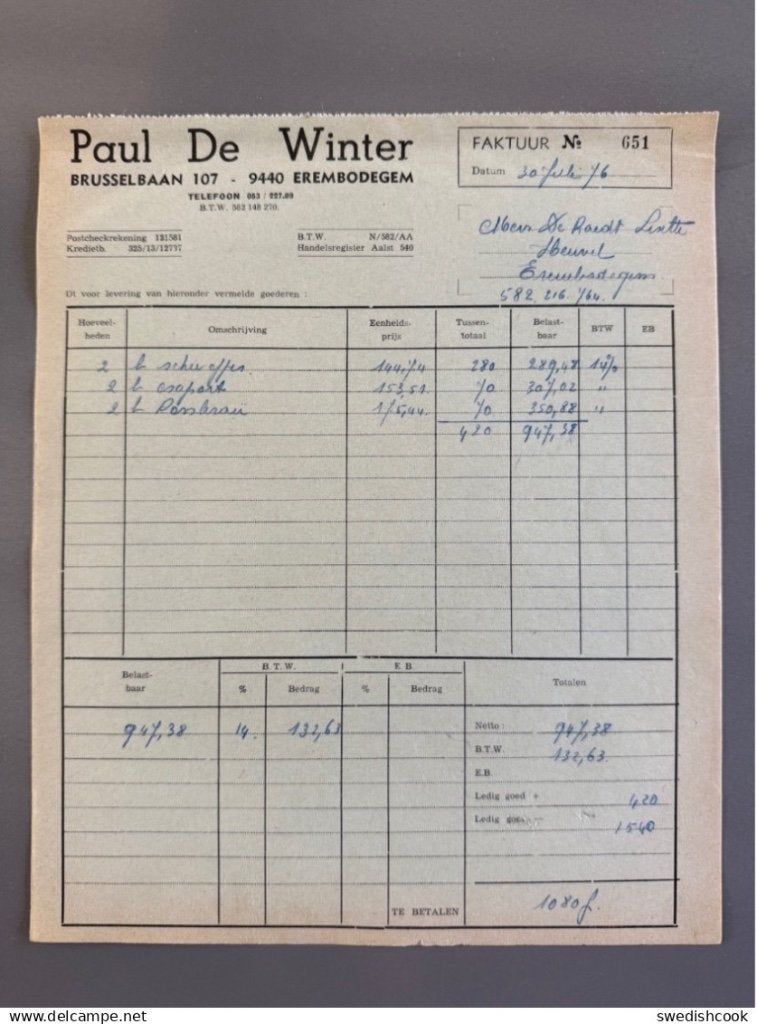 Paul De Winter
BRUSSELBAAN 107 - 9440 EREMBODEGEM
TELEFOON 053 / 227.09
B.T.W. 582 148 270.
Postcheckrekening 121581
Kredietb. 325/13/12737
B.T.W. N/582/AA
Handelsregister Aalst 540
FAKTUUR № 651
Datum 30 Juli 76
Mevr De
Heuvel
Erembodegem
582.216.764.
Dt voor levering van hieronder vermelde goederen :
Hoeveel- Omschrijving Eenheids- Tussen- Belast- BTW EB
heden prijs totaal baar
2 b 144,74 280 289,48 14%
2 b 153,51 70 307,02 "
2 b 175,44 70 350,88 "
420 947,38
Belast- B.T.W. E.B. Totalen
baar % Bedrag % Bedrag
947,38 14. 132,63
Netto : 947,38
B.T.W. 132,63
E.B.
Ledig goed + 420
Ledig 1540
TE BETALEN 1080 f.
delcampe.net
swedishcook